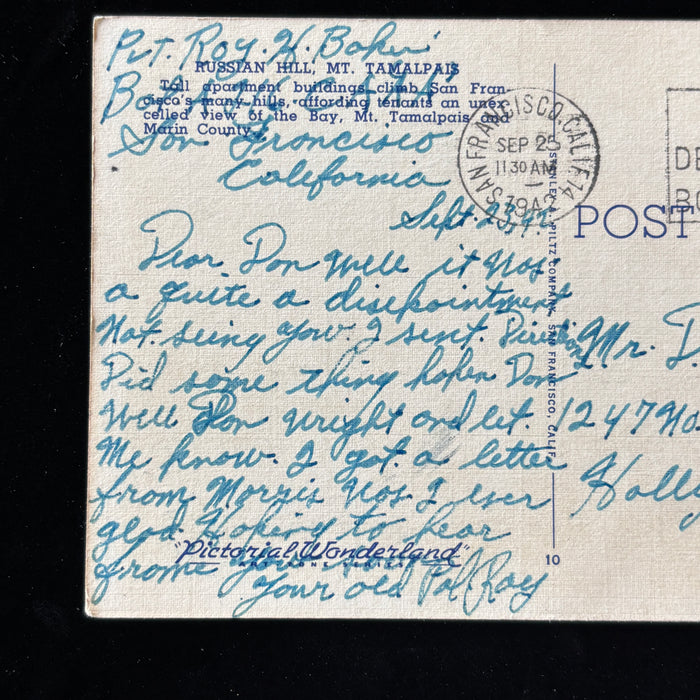 Pvt. Roy. H. Baker
RUSSIAN HILL, MT. TAMALPAIS
Tall apartment buildings climb San Fran-
cisco's many hills, affording tenants an unex-
celled view of the Bay, Mt. Tamalpais and
Marin County.
San Francisco
California
Sept.
SAN FRANCISCO, CALIF. 14
SEP 25
11 30 AM
1942
DE
BO
POST
STANLEY A. PILTZ COMPANY, SAN FRANCISCO, CALIF.
Dear Don Well it Was
a quite a disepointment
Not seing you. I sent. Direction
Did some thing hapen Don
Well Don wright and let.
Me know. I got a letter
from Morris Was I ever
glad. Hoping to hear
frome you
Your old Pal. Roy
Mr. D.
1247 No
Holl
"Pictorial Wonderland"
ART TONE SERIES
10